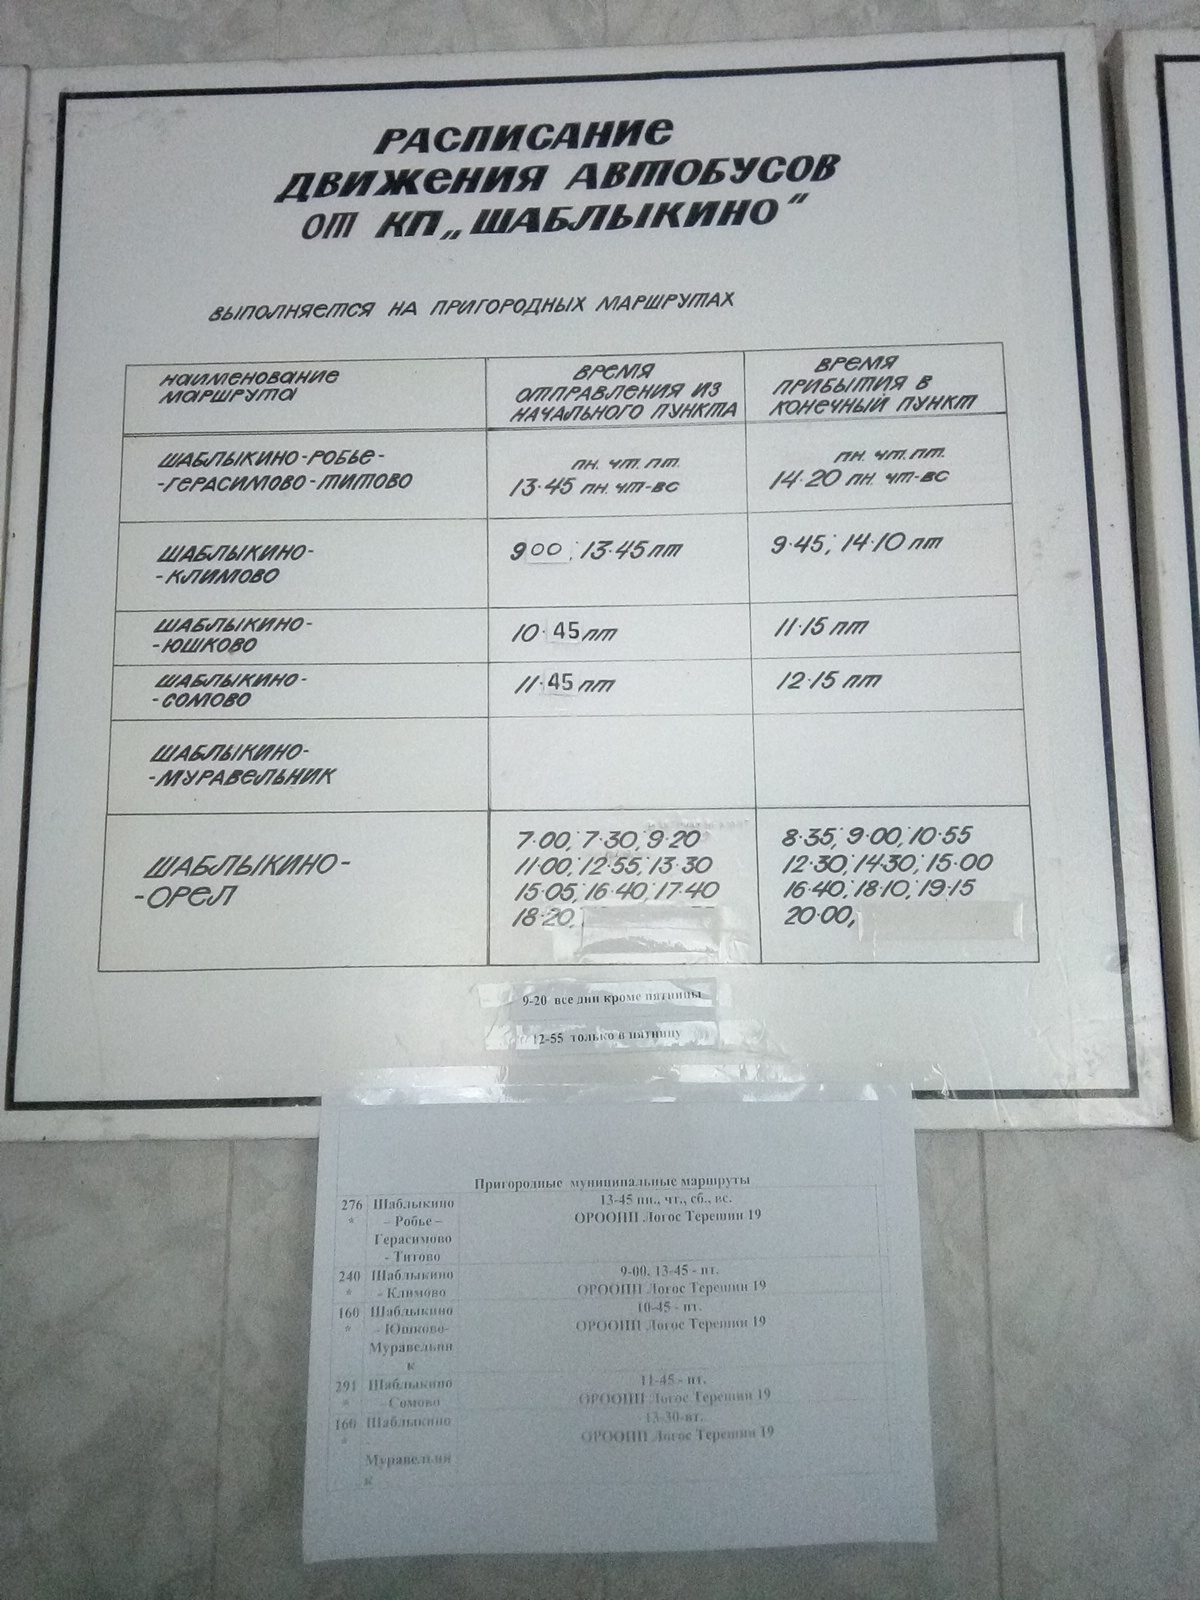 РАСПИСАНИЕ
ДВИЖЕНИЯ АВТОБУСОВ
ОТ КП „ШАБЛЫКИНО“
ВЫПОЛНЯЕТСЯ НА ПРИГОРОДНЫХ МАРШРУТАХ
НАИМЕНОВАНИЕ
МАРШРУТА
ВРЕМЯ
ОТПРАВЛЕНИЯ ИЗ
НАЧАЛЬНОГО ПУНКТА
ВРЕМЯ
ПРИБЫТИЯ В
КОНЕЧНЫЙ ПУНКТ
ШАБЛЫКИНО-РОБЬЕ-
-ГЕРАСИМОВО-ТИТОВО
ПН. ЧТ. ПТ.
13·45 ПН. ЧТ-ВС
ПН. ЧТ. ПТ.
14·20 ПН. ЧТ-ВС
ШАБЛЫКИНО-
-КЛИМОВО
900; 13·45 ПТ
9·45; 14·10 ПТ
ШАБЛЫКИНО-
-ЮШКОВО
10·45 ПТ
11·15 ПТ
ШАБЛЫКИНО-
-СОМОВО
11·45 ПТ
12·15 ПТ
ШАБЛЫКИНО-
-МУРАВЕЛЬНИК
ШАБЛЫКИНО-
-ОРЕЛ
7·00; 7·30; 9·20
11·00; 12·55; 13·30
15·05; 16·40; 17·40
18·20;
8·35; 9·00; 10·55
12·30; 14·30; 15·00
16·40; 18·10; 19·15
20·00;
9-20 все дни кроме пятницы
12-55 только в пятницу
Пригородные муниципальные маршруты
276 Шаблыкино
* – Робье –
Герасимово
- Титово
13-45 пн., чт., сб., вс.
ОРООПП Логос Терешин 19
240 Шаблыкино
* - Климово
9-00, 13-45 - пт.
ОРООПП Логос Терешин 19
160 Шаблыкино
* - Юшково-
Муравельни
к
10-45 - пт.
ОРООПП Логос Терешин 19
291 Шаблыкино
* - Сомово
11-45 - пт.
ОРООПП Логос Терешин 19
160 Шаблыкино
*
Муравельни
к
13-30-вт.
ОРООПП Логос Терешин 19